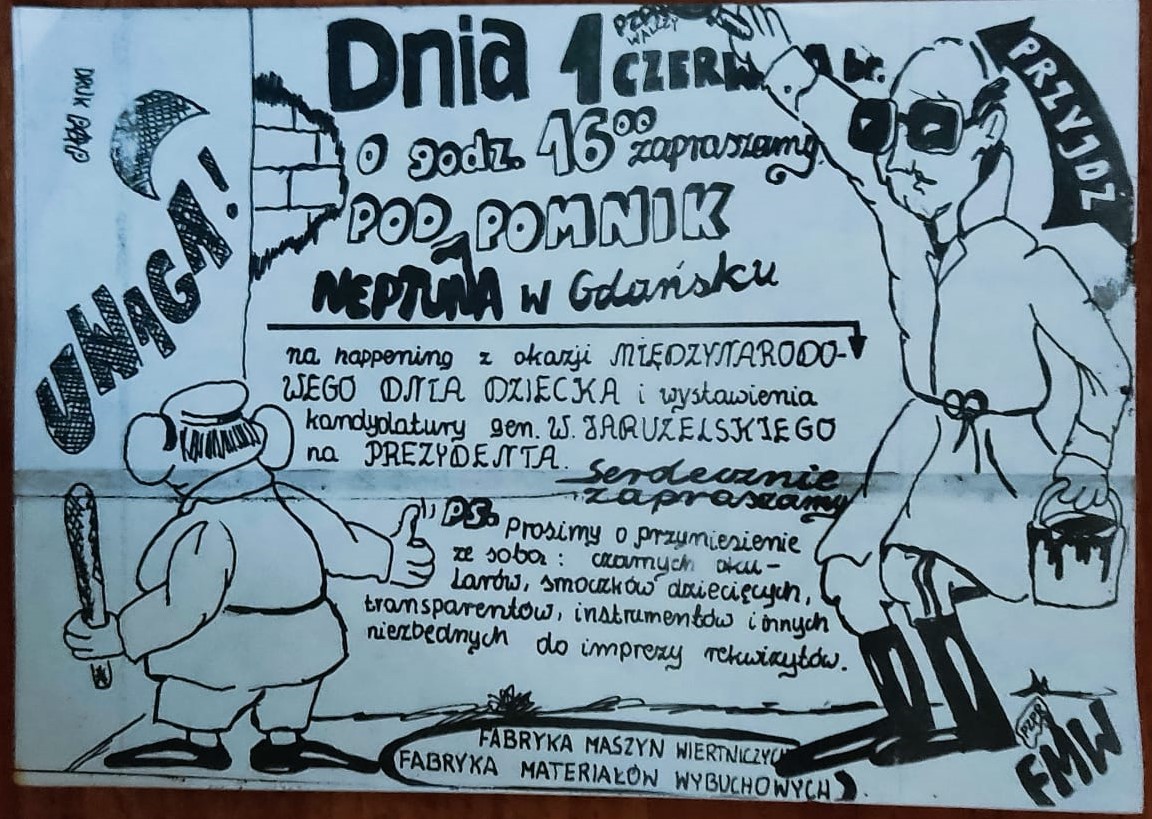 DRUK PAAP
UWAGA!
Dnia 1 CZERWCA br.
o godz. 16⁰⁰ zapraszamy
POD POMNIK
NEPTUNA w Gdańsku
na happening z okazji MIĘDZYNARODO-
WEGO DNIA DZIECKA i wystawienia
kandydatury gen. W. JARUZELSKIEGO
na PREZYDENTA.
Serdecznie
zapraszamy
PS. Prosimy o przyniesienie
ze sobą: czarnych oku-
larów, smoczków dziecięcych,
transparentów, instrumentów i innych
niezbędnych do imprezy rekwizytów.
PRZYJDŹ
FABRYKA MASZYN WIERTNICZYCH
FABRYKA MATERIAŁÓW WYBUCHOWYCH
FMW